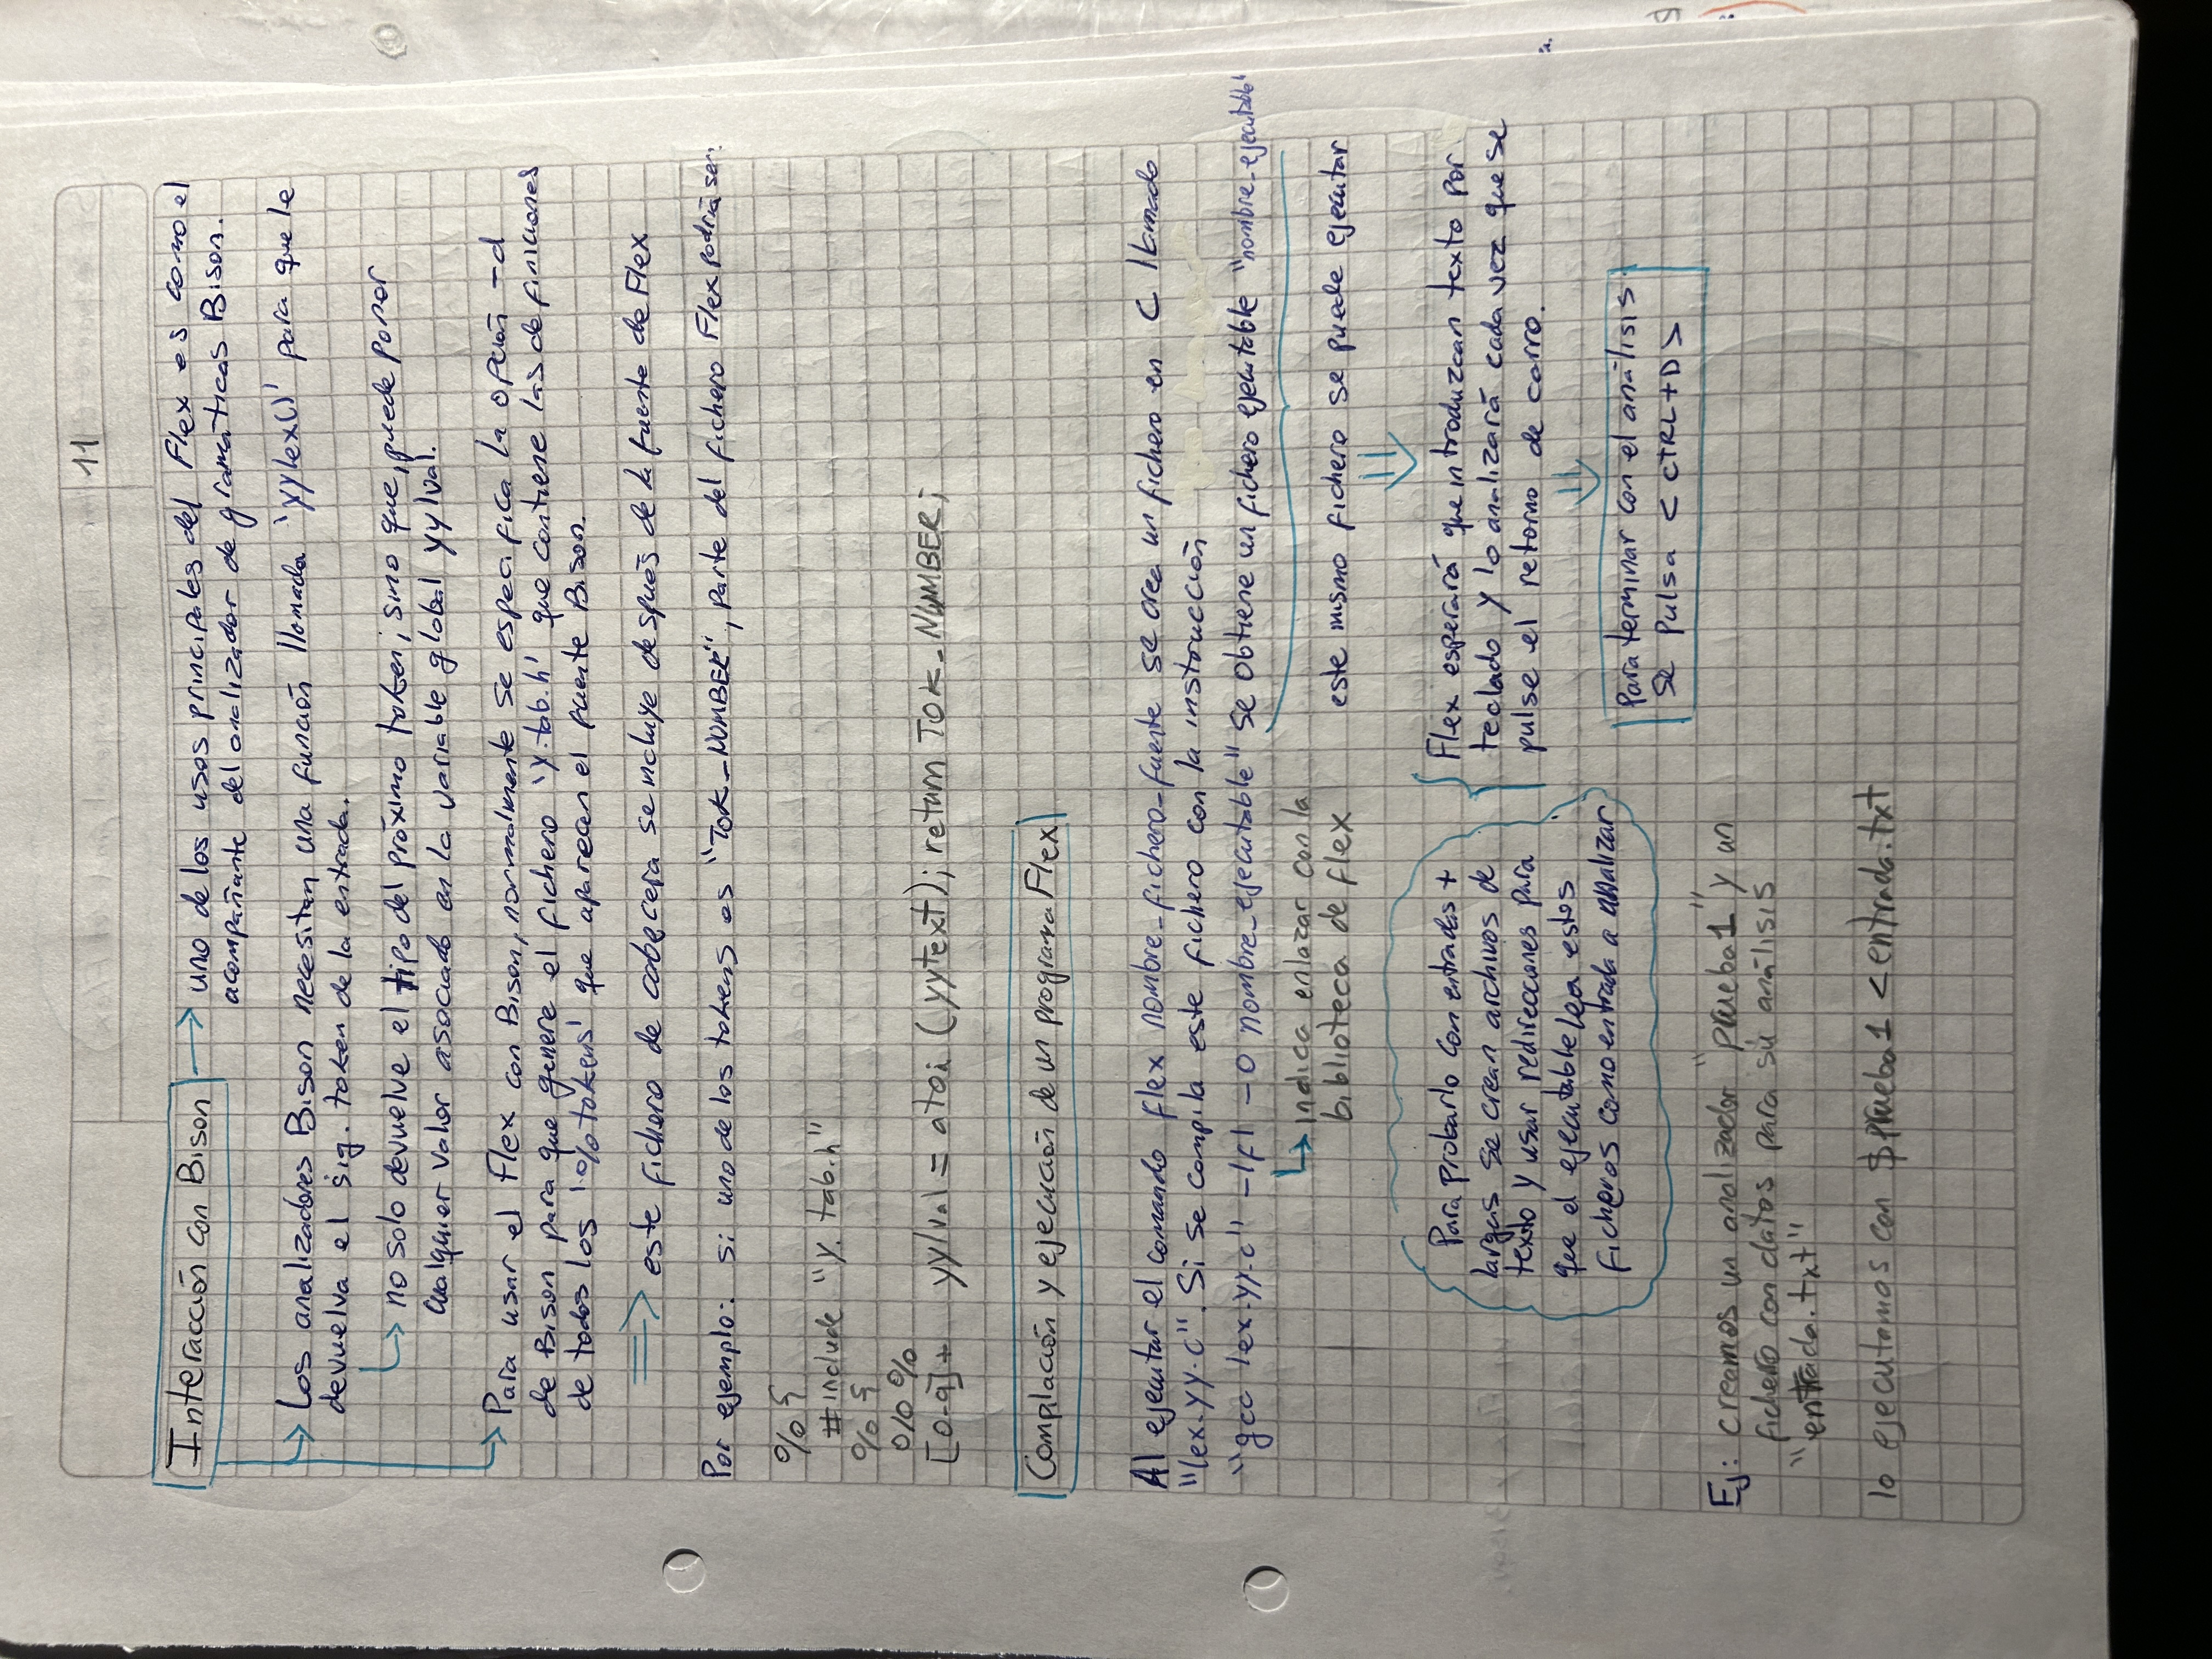 11
Interacción con Bison → uno de los usos principales del Flex es como el
acompañante del analizador de gramáticas Bison.
Los analizadores Bison necesitan una función llamada 'yylex()' para que le
devuelva el sig. token de la entrada.
no solo devuelve el tipo del próximo token, sino que, puede poner
cualquier valor asociado en la variable global yylval.
Para usar el Flex con Bison, normalmente se especifica la opción -d
de Bison para que genere el fichero 'y.tab.h' que contiene las definiciones
de todos los '%tokens' que aparecen el fuente Bison.
⇒ este fichero de cabecera se incluye después de la fuente de Flex
Por ejemplo: si uno de los tokens es "TOK_NUMBER", parte del fichero Flex podría ser:
%{
#include "y.tab.h"
%{
%%
[0-9]+ yylval = atoi (yytext); return TOK_NUMBER;
Compilación y ejecución de un programa Flex
Al ejecutar el comando flex nombre_fichero_fuente se crea un fichero en C llamado
"lex.yy.c". Si se compila este fichero con la instrucción
"gcc lex.yy.c" -lfl -o nombre_ejecutable" se obtiene un fichero ejecutable "nombre_ejecutable"
indica enlazar con la
biblioteca de flex
este mismo fichero se puede ejecutar
Para probarlo con entradas +
largas se crean archivos de
texto y usar redirecciones para
que el ejecutable lea estos
ficheros como entrada a analizar
Flex esperará que introduzcan texto por
teclado y lo analizará cada vez que se
pulse el retorno de carro.
Para terminar con el análisis
se pulsa <CTRL+D>
Ej: creamos un analizador "prueba1" y un
fichero con datos para su análisis
"entrada.txt"
lo ejecutamos con $prueba1 <entrada.txt